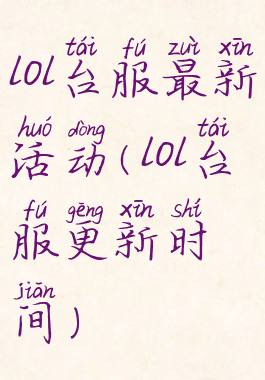 tái fú zuì xīn
lol台服最新
huó dòng tái
活动(lol台
fú gēng xīn shí
服更新时
jiān
间)